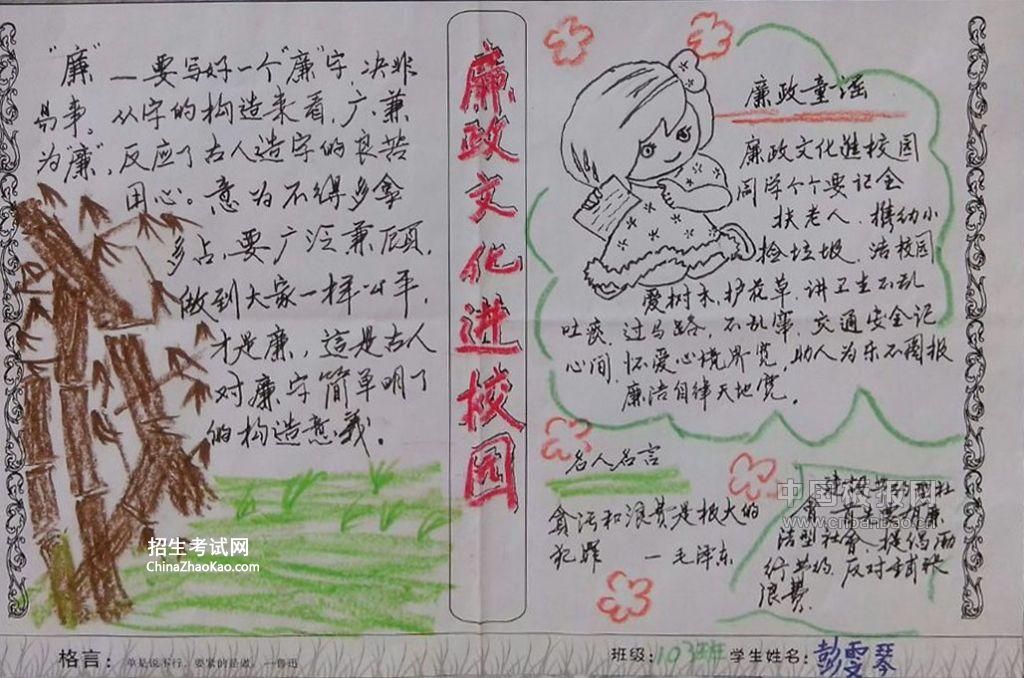 "廉"—要写好一个"廉"字,决非
易事。从字的构造来看,广、兼
为"廉",反应了古人造字的良苦
用心。意为不得多拿
多占,要广泛兼顾,
做到大家一样公平,
才是廉,這是古人
对廉字简单明了
的构造意義。
廉政文化进校园
廉政童谣
廉政文化進校园
同学个个要记全
扶老人、携幼小
捡垃圾,洁校园
爱树木,护花草,讲卫生不乱
吐痰,过马路,不乱窜,交通安全记
心间,怀爱心境界宽,助人为乐不图报
廉洁自律天地宽。
名人名言
貪污和浪费是极大的
犯罪 —毛泽东
建设节约型社
会,首先要
洁型社会,提倡
行节约,反对铺张
浪费.
中国板报网
cnbanbao.cn
招生考试网
ChinaZhaoKao.com
格言: 单是说不行,要紧的是做。—鲁迅
班级:103班 学生姓名:彭雯琴